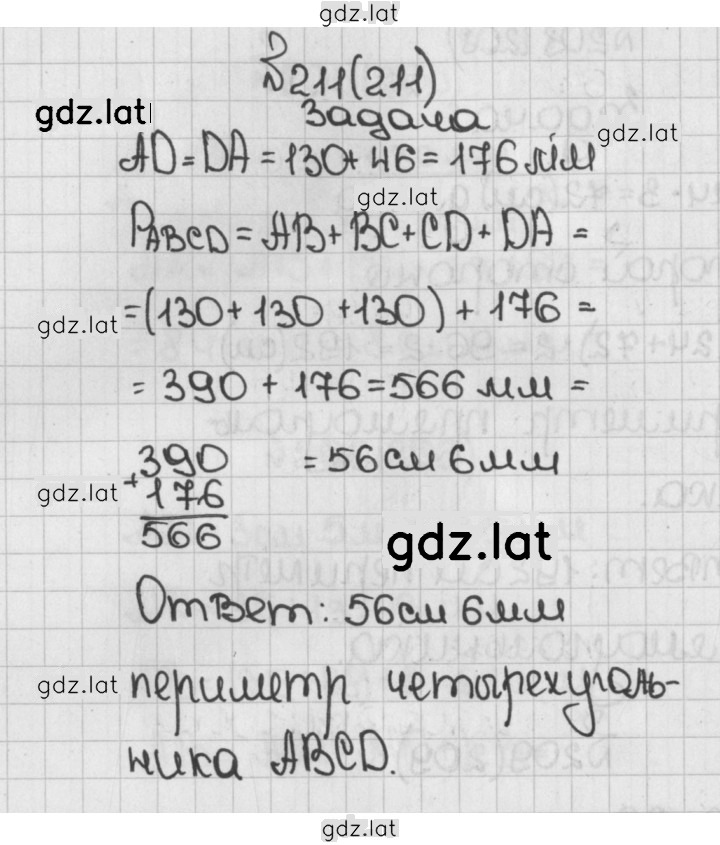 gdz.lat
№211(211)
gdz.lat
Задача
gdz.lat
AD = DA = 130 + 46 = 176 мм
gdz.lat
PABCD = AB + BC + CD + DA =
gdz.lat
= (130 + 130 + 130) + 176 =
= 390 + 176 = 566 мм =
+390
= 56 см 6 мм
gdz.lat
176
566
gdz.lat
Ответ: 56 см 6 мм
gdz.lat
периметр четырехуголь-
ника ABCD.
gdz.lat